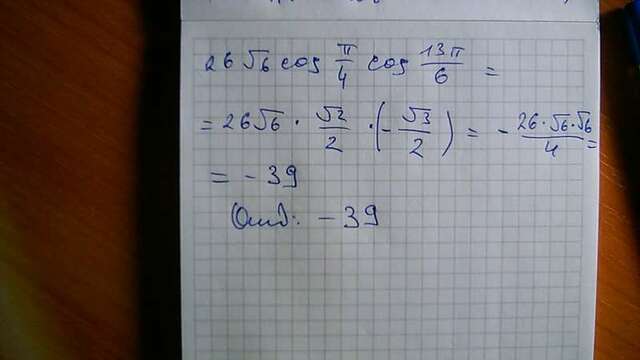 26√6 cos π/4 cos 13π/6 =
= 26√6 · √2/2 · (-√3/2) = - 26·√6·√6/4 =
= - 39
Отв: - 39